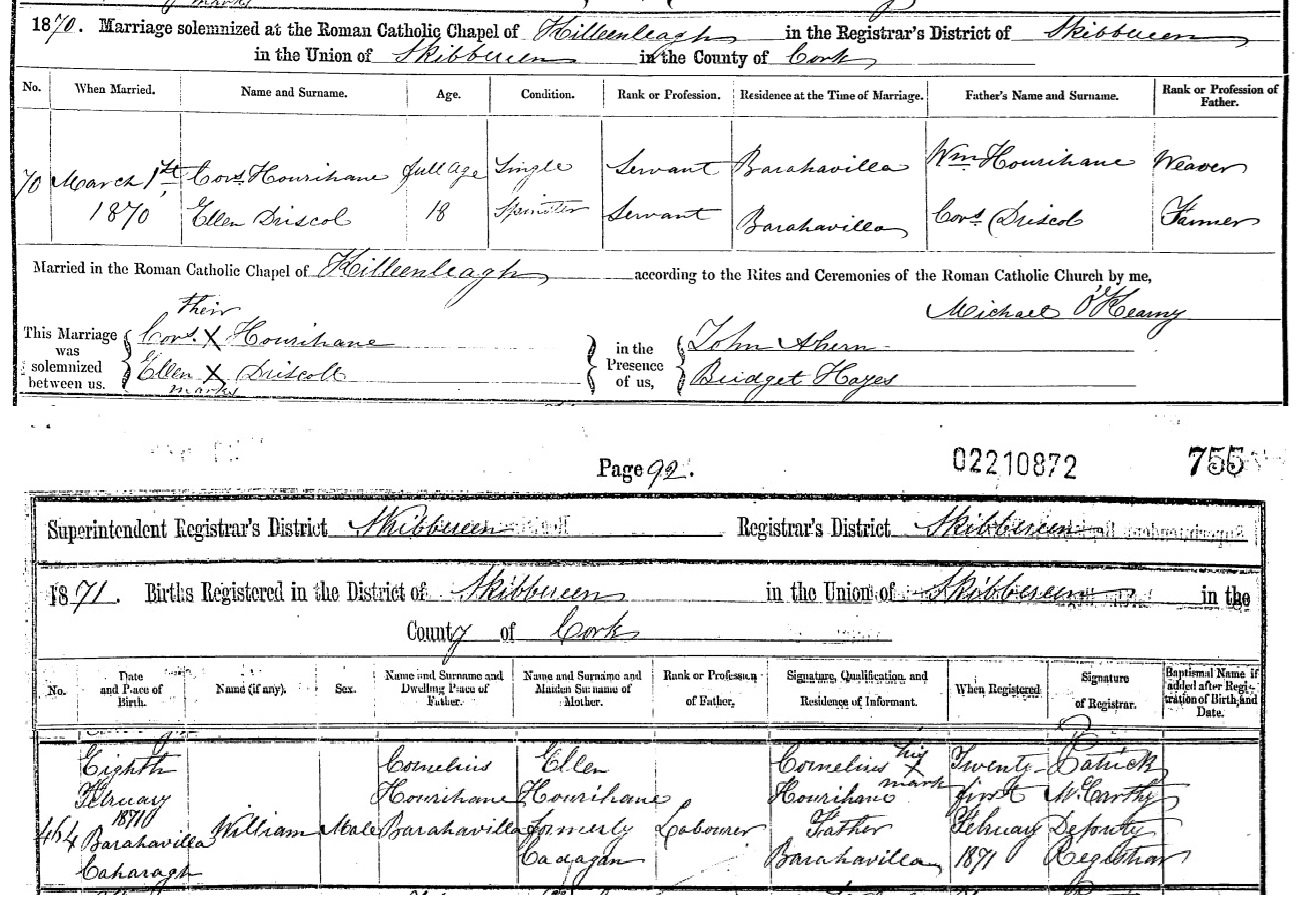 marks
1870. Marriage solemnized at the Roman Catholic Chapel of Killeenleagh in the Registrar's District of Skibbereen
in the Union of Skibbereen in the County of Cork
No. When Married. Name and Surname. Age. Condition. Rank or Profession. Residence at the Time of Marriage. Father's Name and Surname. Rank or Profession of Father.
70 March 1st Cors. Hourihane full age Single Servant Barahavilla Wm Hourihane Weaver
1870 Ellen Driscol 18 Spinster Servant Barahavilla Cors. Driscol Farmer
Married in the Roman Catholic Chapel of Killeenleagh according to the Rites and Ceremonies of the Roman Catholic Church by me,
Michael O'Kearny
their
This Marriage was solemnized between us. Cors. X Hourihane in the Presence of us, John Ahern
Ellen X Driscoll Bridget Hayes
marks
Page 92. 02210872 755
Superintendent Registrar's District Skibbereen Registrar's District Skibbereen
1871. Births Registered in the District of Skibbereen in the Union of Skibbereen in the
County of Cork
No. Date and Place of Birth. Name (if any). Sex. Name and Surname and Dwelling Place of Father. Name and Surname and Maiden Surname of Mother. Rank or Profession of Father. Signature, Qualification, and Residence of Informant. When Registered Signature of Registrar. Baptismal Name if added after Registration of Birth, and Date.
Eighth Cornelius Ellen Cornelius his X mark Twenty- Patrick
February Hourihane Hourihane Hourihane first McCarthy
1871
464 Barahavilla William Male Barahavilla formerly Labourer Father February Deputy
Caharagh Cadagan Barahavilla 1871 Registrar